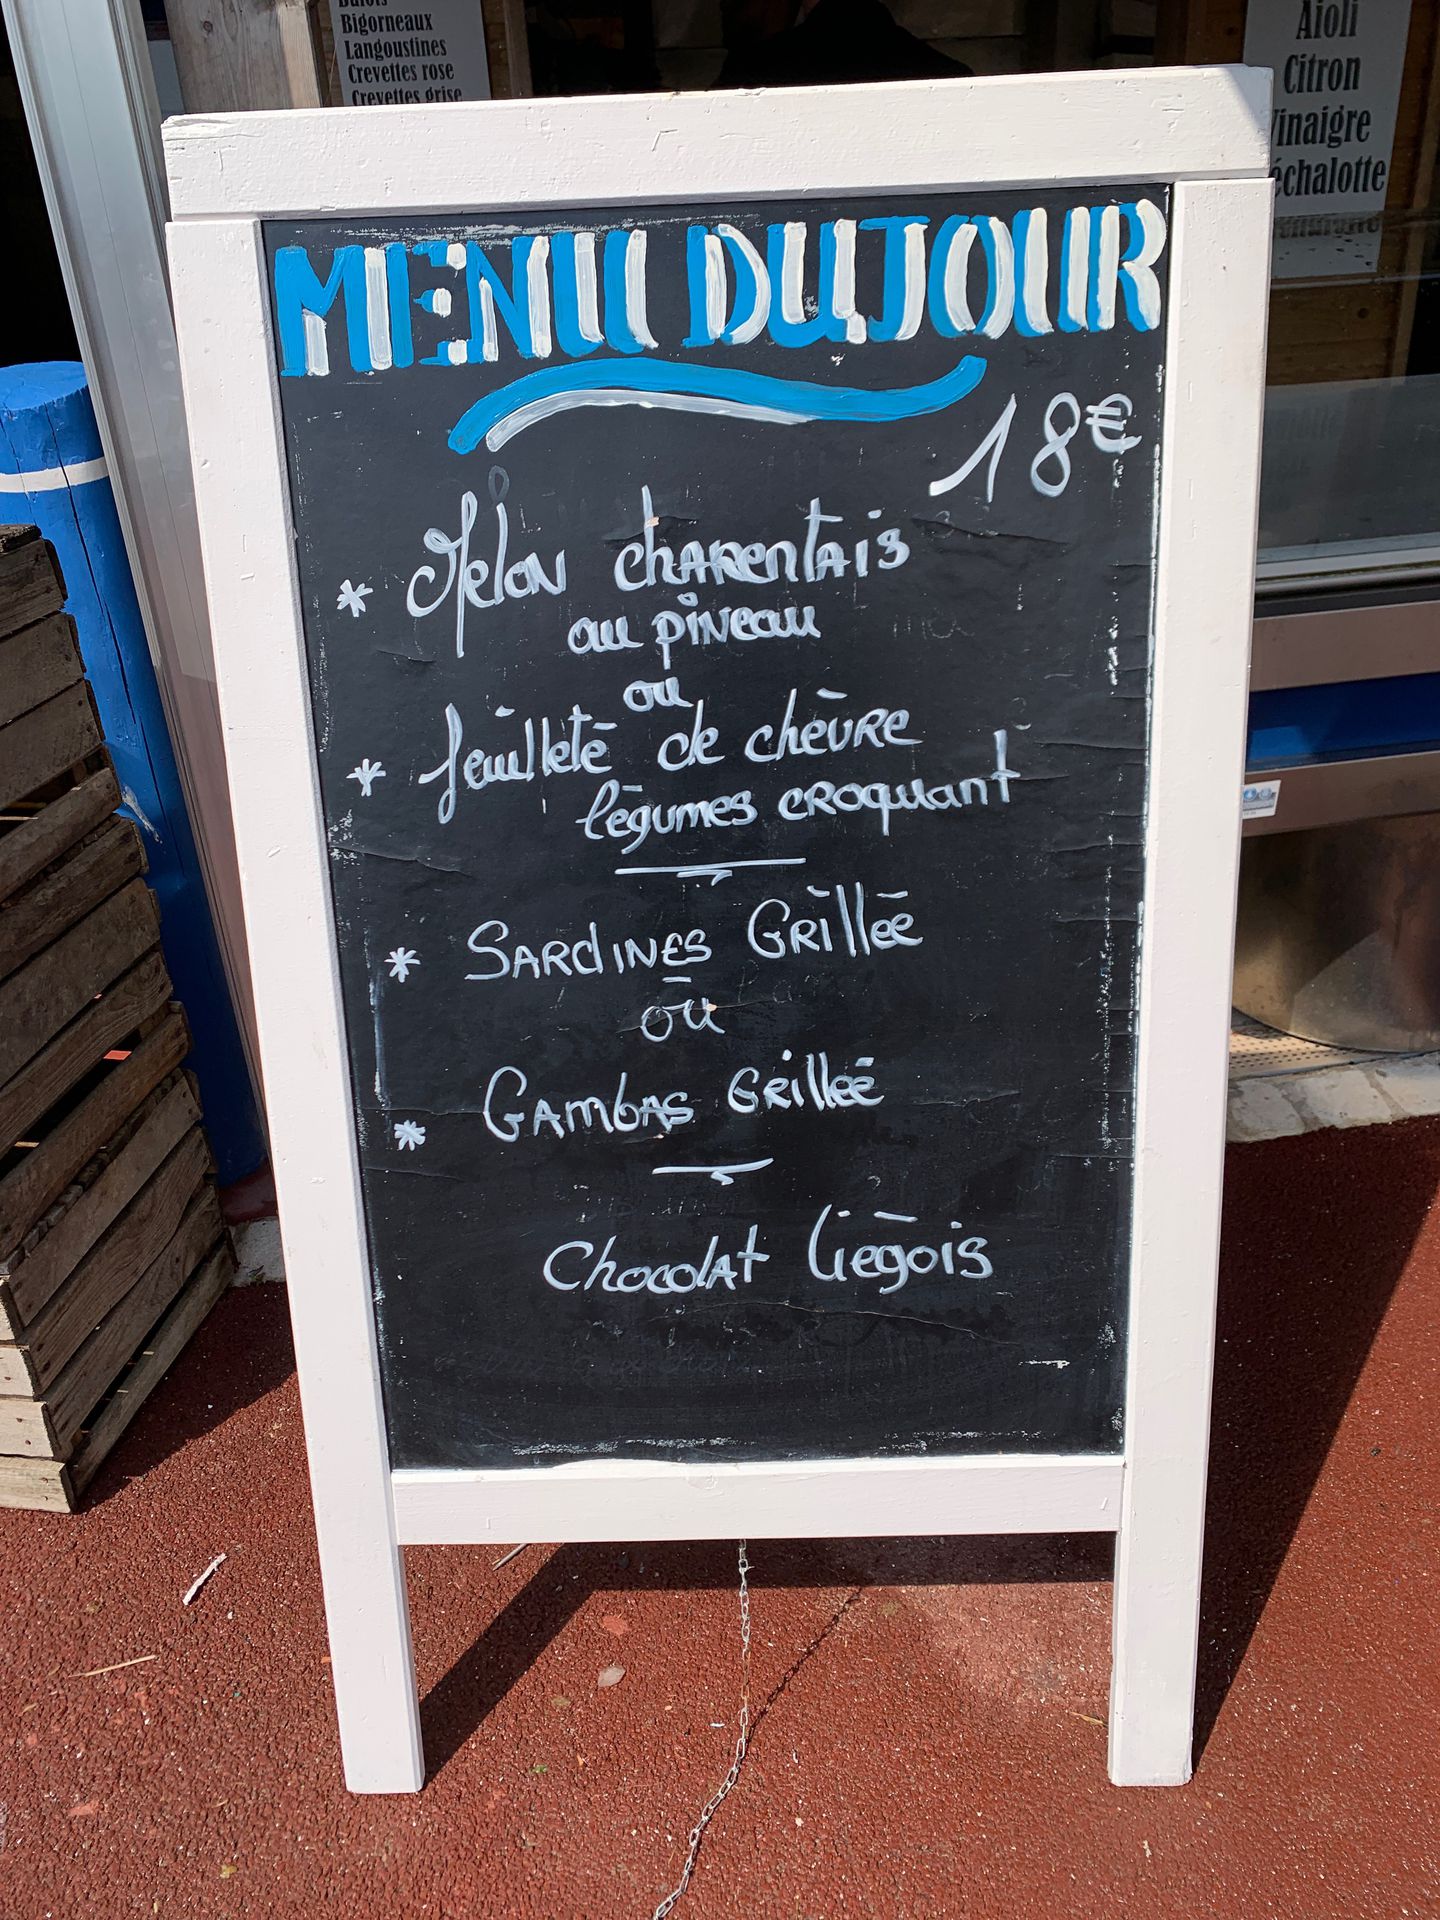 Bulots
Bigorneaux
Langoustines
Crevettes rose
Crevettes grise
Aioli
Citron
Vinaigre
échalotte
MENU DU JOUR
18€
* Melon charentais
au pineau
ou
* feuilleté de chèvre
légumes croquant
* Sardines Grillée
ou
* Gambas Grilleé
Chocolat liégois